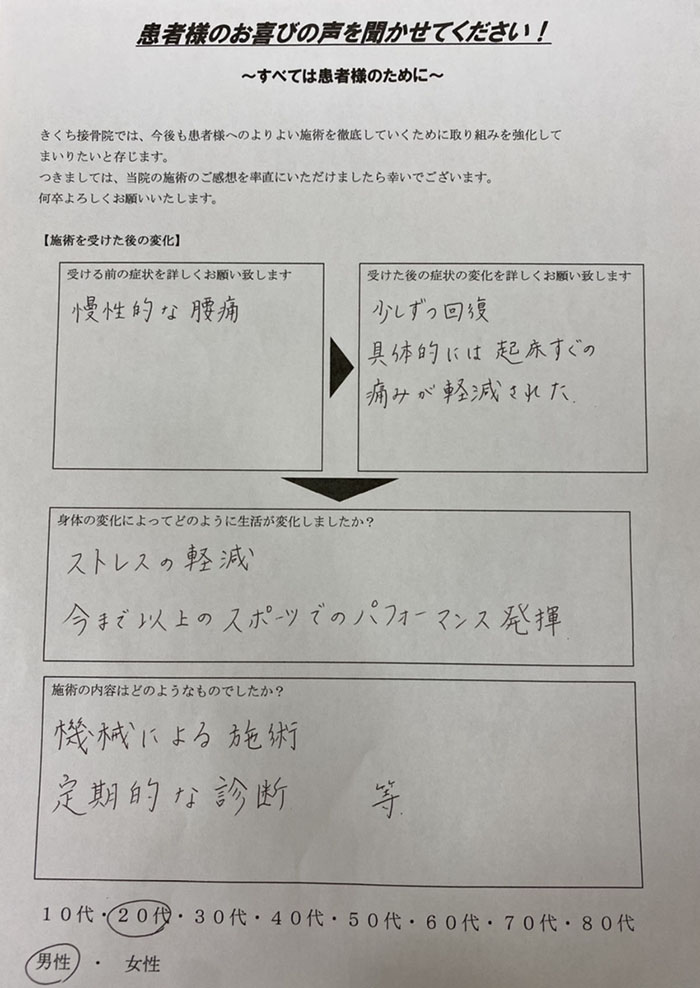 患者様のお喜びの声を聞かせてください！
～すべては患者様のために～
きくち接骨院では、今後も患者様へのよりよい施術を徹底していくために取り組みを強化して
まいりたいと存じます。
つきましては、当院の施術のご感想を率直にいただけましたら幸いでございます。
何卒よろしくお願いいたします。
【施術を受けた後の変化】
受ける前の症状を詳しくお願い致します
慢性的な腰痛
受けた後の症状の変化を詳しくお願い致します
少しずつ回復
具体的には起床すぐの
痛みが軽減された.
身体の変化によってどのように生活が変化しましたか？
ストレスの軽減
今まで以上のスポーツでのパフォーマンス発揮
施術の内容はどのようなものでしたか？
機械による施術
定期的な診断 等.
１０代・２０代・３０代・４０代・５０代・６０代・７０代・８０代
男性 ・ 女性